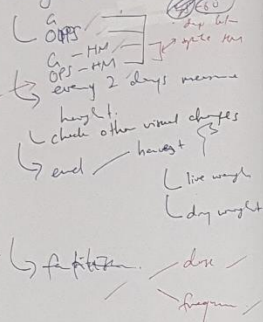 G
OPPS
G - HM
OPS - HM
every 2 days measure
height.
check other visual changes
end / harvest
live weigh
dry weight
dose
frequen